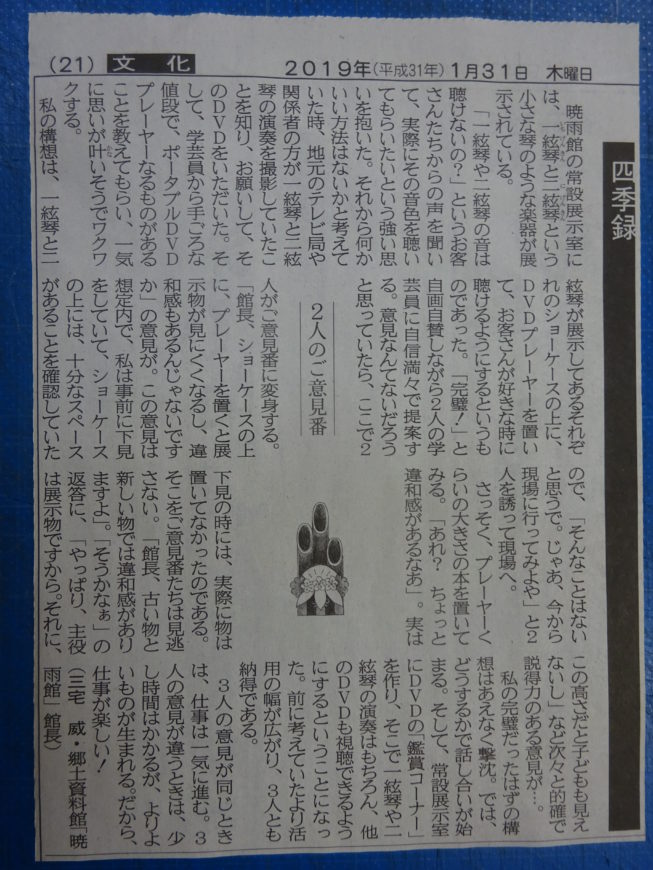 (21) 文化 2019年(平成31年)1月31日 木曜日
四季録
2人のご意見番
暁雨館の常設展示室に
は、一絃琴と二絃琴という
小さな琴のような楽器が展
示されている。
「一絃琴や二絃琴の音は
聴けないの?」というお客
さんたちからの声を聞い
て、実際にその音色を聴い
てもらいたいという強い思
いを抱いた。それから何か
いい方法はないかと考えて
いた時、地元のテレビ局や
関係者の方が一絃琴と二絃
琴の演奏を撮影していたこ
とを知り、お願いして、そ
のDVDをいただいた。そ
して、学芸員から手ごろな
値段で、ポータブルDVD
プレーヤーなるものがある
ことを教えてもらい、一気
に思いが叶いそうでワクワ
クする。
私の構想は、一絃琴と二
絃琴が展示してあるそれぞ
れのショーケースの上に、
DVDプレーヤーを置い
て、お客さんが好きな時に
聴けるようにするというも
のであった。「完璧!」と
自画自賛しながら2人の学
芸員に自信満々で提案す
る。意見なんてないだろう
と思っていたら、ここで2
人がご意見番に変身する。
「館長、ショーケースの上
に、プレーヤーを置くと展
示物が見にくくなるし、違
和感もあるんじゃないです
か」の意見が。この意見は
想定内で、私は事前に下見
をしていて、ショーケース
の上には、十分なスペース
があることを確認していた
ので、「そんなことはない
と思うで。じゃあ、今から
現場に行ってみよや」と2
人を誘って現場へ。
さっそく、プレーヤーく
らいの大きさの本を置いて
みる。「あれ? ちょっと
違和感があるなあ」。実は
下見の時には、実際に物は
置いてなかったのである。
そこをご意見番たちは見逃
さない。「館長、古い物と
新しい物では違和感があり
ますよ」。「そうかなぁ」の
返答に、「やっぱり、主役
は展示物ですから。それに、
この高さだと子どもも見え
ないし」など次々と的確で
説得力のある意見が…。
私の完璧だったはずの構
想はあえなく撃沈。では、
どうするかで話し合いが始
まる。そして、常設展示室
にDVDの「鑑賞コーナー」
を作り、そこで一絃琴や二
絃琴の演奏はもちろん、他
のDVDも視聴できるよう
にするということになっ
た。前に考えていたより活
用の幅が広がり、3人とも
納得である。
3人の意見が同じとき
は、仕事は一気に進む。3
人の意見が違うときは、少
し時間はかかるが、よりよ
いものが生まれる。だから、
仕事が楽しい!
(三宅 威・郷土資料館「暁
雨館」館長)